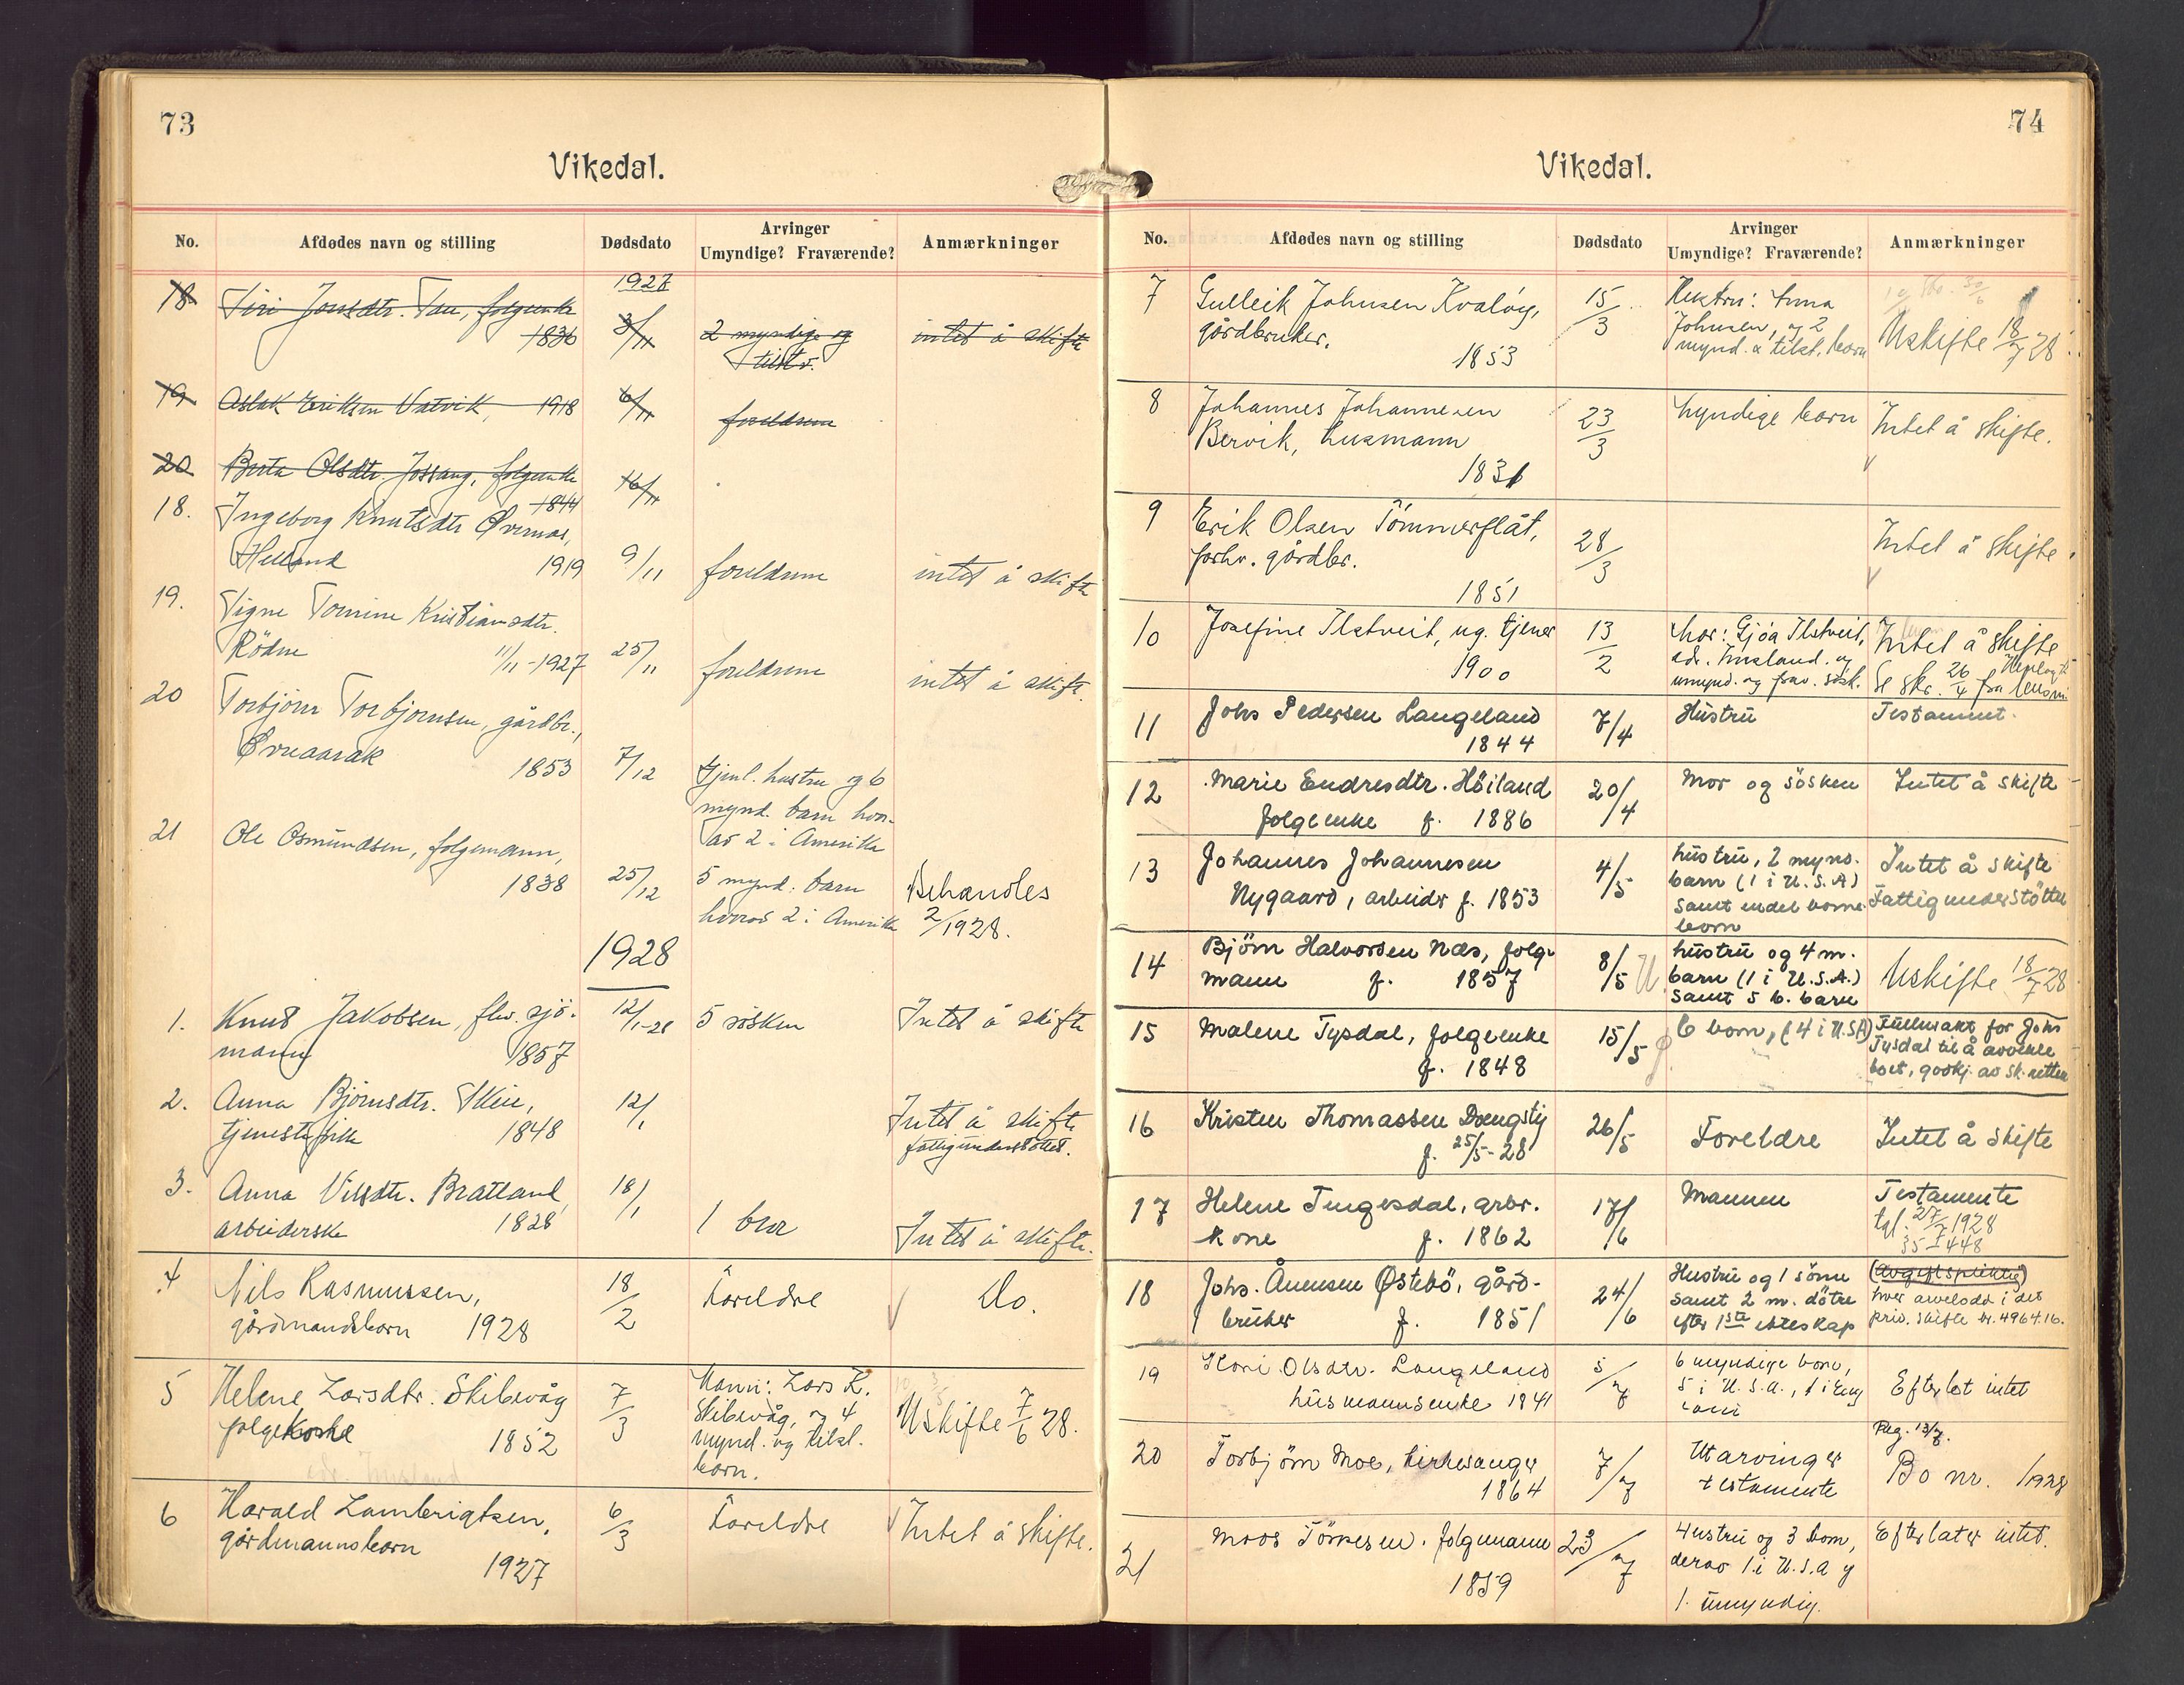 73
Vikedal.
No. Afdødes navn og stilling Dødsdato Arvinger Umyndige? Fraværende? Anmærkninger
1927
18 Siri Jonsdtr. Tau, folgeenke 3/11 2 myndige og intet å skifte
1836 tilst.
19 Aslak Eriksen Vatvik, 1918 6/11 foreldrene
20 Berta Olsdtr. Jossang, folgeenke 16/11
1844
18. Ingeborg Knutsdtr Øvernes,
Helland 1919 9/11 foreldrene intet å skifte
19. Signe Tomine Kristiansdtr.
Rödne 11/11-1927 25/11 foreldrene intet å skifte.
20 Torbjörn Torbjornsen, gårdbr.,
Øvreaarak 1853 7/12 Gjenl. hustru og 6
mynd. barn hvor-
av 2 i Amerika
21 Ole Osmundsen, folgemann,
1838 25/12 5 mynd. barn Behandles
hvorav 2 i Amerika 2/1928.
1928
1. Knut Jakobsen, fhv. sjö- 12/1-28 5 sösken Intet å skifte
mann 1857
2. Anna Björnsdtr. Skeie, 12/1 Intet å skifte
tjenestepike 1848 fattigunderstöttet.
3. Anna Nilsdtr. Bratland, 18/1
arbeiderske 1828 1 bror Intet å skifte.
4 Nils Rasmussen, 18/2 Foreldre Do.
gårdmandsbarn 1928
5 Helene Larsdtr. Skibevåg 7/3 Mann: Lars K. Uskifte 7/6 28.
folgekone 1852 Skibevåg, og 4
mynd. og tilst.
barn.
6 Harald Lambrigtsen, 6/3 Foreldre Intet å skifte.
gårdmannsbarn
1927
74
Vikedal.
No. Afdødes navn og stilling Dødsdato Arvinger Umyndige? Fraværende? Anmærkninger
7 Gulleik Johnsen Kvalöy, 15/3 Hustru: Anna
gårdbruker. Johnsen, og 2 Uskifte 18/7 28
1853 mynd. & tilst. barn
8 Johannes Johannesen 23/3 Myndige barn Intet å skifte.
Bervik, husmann
1831
9 Erik Olsen Tömmerflåt, 28/3 Intet å skifte.
forhv. gårdbr.
1851
10 Josefine Ilstveit, ug. tjener 13/2 Mor: Gjöa Ilstveit, Intet å skifte
1900 adr. Imsland. og
umynd. og frav. sösk. Se skr. 26/4 fra lensm.
11 Johs Pedersen Langeland 7/4 Hustru Testament.
1844
12 Marie Endresdtr. Höiland 20/4 Mor og sösken Intet å skifte
folgeenke f. 1886
13 Johannes Johannesen 4/5 hustru, 2 mynd. Intet å skifte
Nygaard, arbeider f. 1853 barn (1 i U.S.A) Fattigunderstöttet
samt endel barne-
barn
14 Björn Halvorsen Næs, folge- 8/5 hustru og 4 m. Uskifte 18/7 28
mann f. 1857 barn (1 i U.S.A.)
samt 5 b. barn
15 Malene Tysdal, folgeenke 15/5 6 born, (4 i U.S.A) Fullmakt for Johs
f. 1848 Tysdal til å avvikle
boet, godkj. av sk.retten
16 Kristen Thomassen Drengstig 26/5 Foreldre Intet å skifte
f. 25/5-28
17 Helene Tengesdal, arbr. 17/6 Mannen Testamente
kone f. 1862 tgl. 27/7 1928
35-448
18 Johs. Ånensen Østebö, gård- 24/6 Hustru og 1 sönn (Avgiftspliktig)
bruker f. 1851 samt 2 m. dötre hver arvelodd i det
efter 1ste ekteskap priv. skifte kr. 4964.16.
19 Kari Olsdtr. Langeland 5/7 6 myndige born,
husmannsenke 1841 5 i U.S.A., Efterlot intet
20 Torbjörn Moe, kirkesanger 7/7 Utarvinger Reg. 13/7.
1864 testamente Bo nr. /1928
21 Mons Törresen. folgemann 23/7 Hustru og 3 born, Efterlater intet.
1859 derav 1 i U.S.A og
1. umyndig.